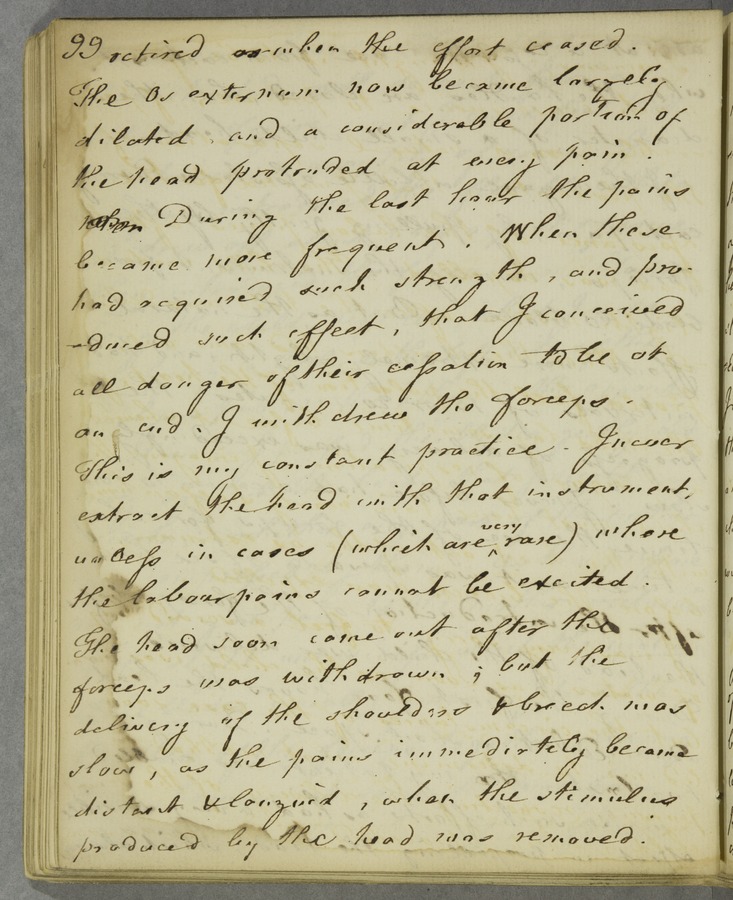 99 retired when the effort ceased.
The Os externum now became largely
dilated and a considerable portion of
the head protruded at every pain.
During the last hour the pains
became more frequent. When these
had acquired such strength, and pro-
-duced such effect, that I conceived
all danger of their cessation to be at
an end. I withdrew the forceps.
This is my constant practice. I never
extract the head with that instrument,
unless in cases (which are very rare) where
the labour pains cannot be excited.
The head soon came out after the
forceps was withdrawn; but the
delivery of the shoulders & breech was
slow, as the pains immediately became
distant & languid, when the stimulus
produced by the head was removed.